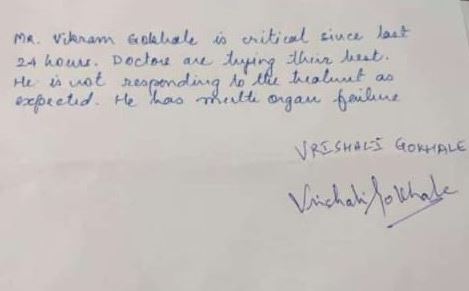 MR. Vikram Gokhale is critical since last
24 hours. Doctors are trying their best.
He is not responding to the treatment as
expected. He has multi organ failure
VRISHALI GOKHALE
Vrishali Gokhale